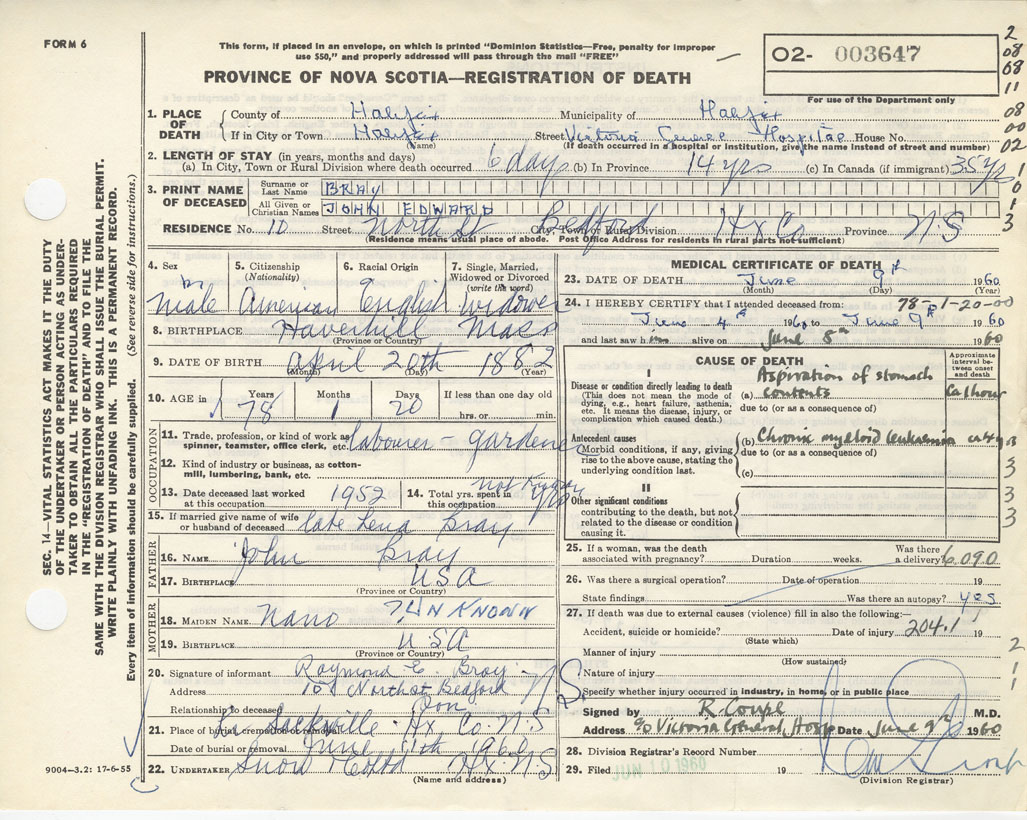 FORM 6
This form, if placed in an envelope, on which is printed "Dominion Statistics—Free, penalty for improper
use $50," and properly addressed will pass through the mail "FREE"
PROVINCE OF NOVA SCOTIA—REGISTRATION OF DEATH
02- 003647
For use of the Department only
2
08
08
11
08
00
02
1
0
1
3
1. PLACE OF DEATH
County of Halifax Municipality of Halifax
If in City or Town Halifax Street Victoria General Hospital House No.
(Name) (If death occurred in a hospital or institution, give the name instead of street and number)
2. LENGTH OF STAY (in years, months and days)
(a) In City, Town or Rural Division where death occurred 6 days (b) In Province 14 yrs (c) In Canada (if immigrant) 35 yrs
3. PRINT NAME OF DECEASED
Surname or Last Name BRAY
All Given or Christian Names JOHN EDWARD
RESIDENCE No. 10 Street North St City, Town or Rural Division Bedford Hx Co Province N.S
(Residence means usual place of abode. Post Office Address for residents in rural parts not sufficient)
4. Sex male
5. Citizenship (Nationality) American
6. Racial Origin English
7. Single, Married, Widowed or Divorced (write the word) widower
8. BIRTHPLACE Haverhill Mass
(Province or Country)
9. DATE OF BIRTH April 20th 1882
(Month) (Day) (Year)
10. AGE in Years 78 Months 1 Days 20 If less than one day old
hrs. or min.
OCCUPATION
11. Trade, profession, or kind of work as spinner, teamster, office clerk, etc. labourer - gardener
12. Kind of industry or business, as cotton-mill, lumbering, bank, etc.
13. Date deceased last worked at this occupation 1952
14. Total yrs. spent in this occupation not known
15. If married give name of wife or husband of deceased late Lena Bray
FATHER
16. NAME John Bray
17. BIRTHPLACE USA
(Province or Country)
MOTHER
18. MAIDEN NAME UNKNOWN
19. BIRTHPLACE USA
(Province or Country)
20. Signature of informant Raymond E. Bray
Address 10 North st Bedford N.S.
Relationship to deceased Son
21. Place of burial, cremation or removal Sackville Hx Co. N.S
Date of burial or removal June 11th 1960
22. UNDERTAKER Snow Hx N.S
(Name and address)
MEDICAL CERTIFICATE OF DEATH
23. DATE OF DEATH June 9th 1960
(Month) (Day) (Year)
78-01-20-00
24. I HEREBY CERTIFY that I attended deceased from:
June 4th 1960 to June 9th 1960
and last saw him alive on June 8th 1960
CAUSE OF DEATH
Approximate interval between onset and death
I
Disease or condition directly leading to death
(This does not mean the mode of dying, e.g., heart failure, asthenia, etc. It means the disease, injury, or complication which caused death.)
(a) Aspiration of stomach contents
due to (or as a consequence of)
Antecedent causes
(Morbid conditions, if any, giving rise to the above cause, stating the underlying condition last.
(b) Chronic myeloid leukaemia
due to (or as a consequence of)
(c)
II
Other significant conditions
contributing to the death, but not related to the disease or condition causing it.
3
3
3
3
3
25. If a woman, was the death associated with pregnancy? Duration weeks. Was there a delivery? 6090
26. Was there a surgical operation? Date of operation 19
State findings Was there an autopsy? yes
27. If death was due to external causes (violence) fill in also the following:—
Accident, suicide or homicide? Date of injury 204.1 19
(State which)
Manner of injury
(How sustained)
Nature of injury
Specify whether injury occurred in industry, in home, or in public place
2
1
1
Signed by R. Coupe M.D.
Address c/o Victoria General Hosp Date June 9th 1960
28. Division Registrar's Record Number
29. Filed JUN 10 1960 19
(Division Registrar)
SEC. 14.—VITAL STATISTICS ACT MAKES IT THE DUTY
OF THE UNDERTAKER OR PERSON ACTING AS UNDER-
TAKER TO OBTAIN ALL THE PARTICULARS REQUIRED
IN THE "REGISTRATION OF DEATH" AND TO FILE THE
SAME WITH THE DIVISION REGISTRAR WHO SHALL ISSUE THE BURIAL PERMIT.
WRITE PLAINLY WITH UNFADING INK. THIS IS A PERMANENT RECORD.
Every item of information should be carefully supplied. (See reverse side for instructions.)
9004-3.2: 17-6-55